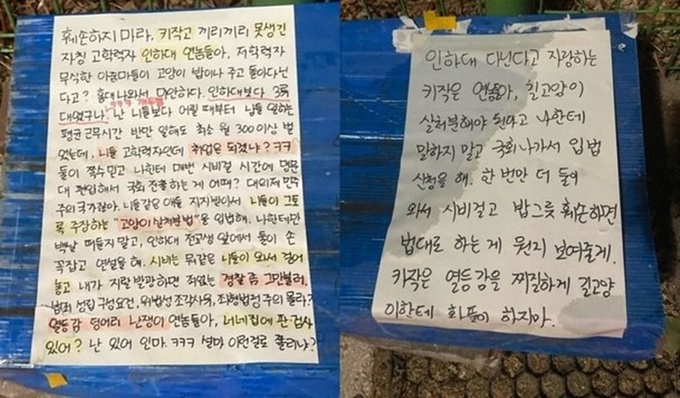 훼손하지 마라. 키작고 끼리끼리 못생긴
자칭 고학력자 인하대 연놈들아. 저학력자
무식한 아줌마들이 고양이 밥이나 주고 돌아다닌
다고? 홍대 나와서 미안하다. 인하대보다 3류
대였구나. 난 니들보다 어릴 때부터 남들 일하는
ㅋㅋㅋ
평균 근무시간 반만 일해도 최소 월 300이상 벌
었는데, 니들 고학력자인데 취업은 되겠냐? ㅋㅋ
둘이 쪽수 믿고 나한테 매번 시비걸 시간에 명문
대 편입해서 국회 진출하는 게 어때? 대의제 민주
주의 국가잖아. 니들같은 애들 지지받아서 니들이 그토
록 주장하는 "고양이 살처분법"을 입법해. 나한테만
백날 떠들지 말고, 인하대 전교생 앞에서 둘이 손
꼭잡고 연설을 해. 시비는 뭐같은 니들이 와서 걸어
놓고 내가 지랄발광하면 죄없는 경찰 좀 그만불러.
범죄 성립 구성요건, 위법성 조각사유, 죄형법정주의 몰라?
열등감 덩어리 난쟁이 연놈들아, 너네집에 판·검사
있어? 난 있어 인마. ㅋㅋㅋ 설마 이런걸로 쫄리냐?
인하대 다닌다고 자랑하는
키작은 연놈들아, 길고양이
살처분해야 된다고 나한테
말하지 말고 국회 나가서 입법
신청을 해. 한 번만 더 둘이
와서 시비걸고 밥그릇 훼손하면
법대로 하는 게 뭔지 보여줄게.
키작은 열등감을 찌질하게 길고양
이한테 화풀이 하지마.